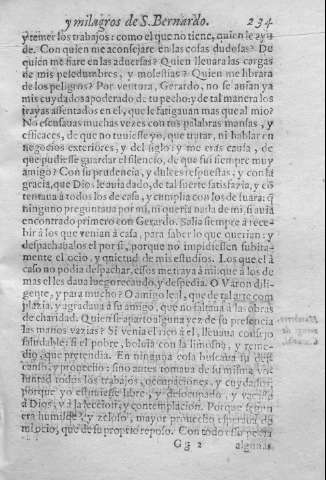 y milagros de S. Bernardo. 234
y temer los trabajos: como el que no tiene, quien le ayu
de. Con quien me aconsejare en las cosas dudosas? De
quien me fiare en las aduersas? Quien lleuara las cargas
de mis pesadumbres, y molestias? Quien me librara
de los peligros? Por ventura, Gerardo, no se auian ya
mis cuydados apoderado de tu pecho: y de tal manera los
trayas assentados en el, que le fatigauan mas que al mio?
No escusauas muchas vezes con tus palabras mansas, y
eficaces, de que no tuuiesse yo, que tratar, ni hablar en
negocios exteriores, y del siglo: y me eras causa, de
que pudiesse guardar el silencio, de que fui siempre muy
amigo? Con su prudencia, y dulces respuestas, y con la
gracia, que Dios le auia dado, de tal suerte satisfazia, y cō
tentaua à todos los de casa, y cumplia con los de fuara: q̃
ninguno preguntaua por mi, ni queria nada de mi, si auia
encontrado primero con Gerardo. Salia siempre à rece-
bir à los que venian à casa, para saber lo que querian: y
despachabalos el por si, porque no impidiessen subita-
mente el ocio, y quietud de mis estudios. Los que el à
caso no podia despachar, essos me traya à mi: que à los de
mas el les daua luego recaudo, y despedia. O Varon dili-
gente, y para mucho? O amigo leal, que de tal arte com
plazia, y agradaua à su amigo, que no faltaua à las obras
de charidad. Quien se aparto alguna vez de su presencia
las manos vazias? Si venia el rico à el, lleuaua consejo
saludable: si el pobre, boluia con la limosna, y reme-
dio, que pretendia. En ninguna cosa buscaua su des
canso, y prouecho: sino antes tomaua de su misma vo-
luntad todos los trabajos, ocupaciones, y cuydados;
porque yo estuuiesse libre, y desocupado, y vacasse
à Dios, y à la leccion, y contemplacion. Porque segun
era humilde, y zeloso, mayor prouecho esperaua de
mi ocio, que de su proprio reposo. Con todo
Gg 2 algunas